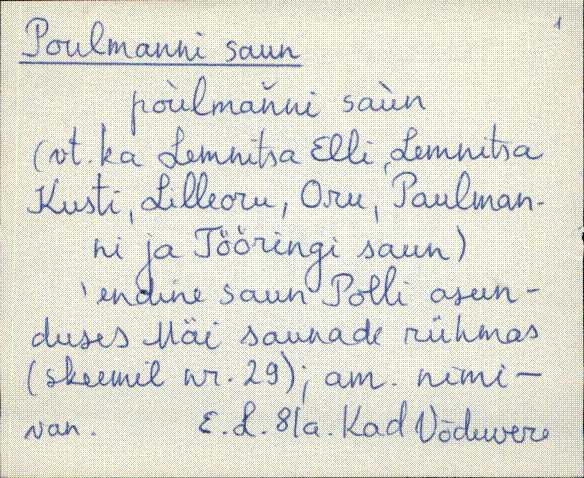 1
Poulmanni saun
pòulmaňni saùn
(vt. ka Lemnitsa Elli, Lemnitsa
Kusti, Lilleoru, Oru, Paulman-
ni ja Tööringi saun)
'endine saun Polli asun-
duses Mäi saunade rühmas
(skeemil nr. 29); am. nimi-
van. E. L. 81a. Kad Võduvere